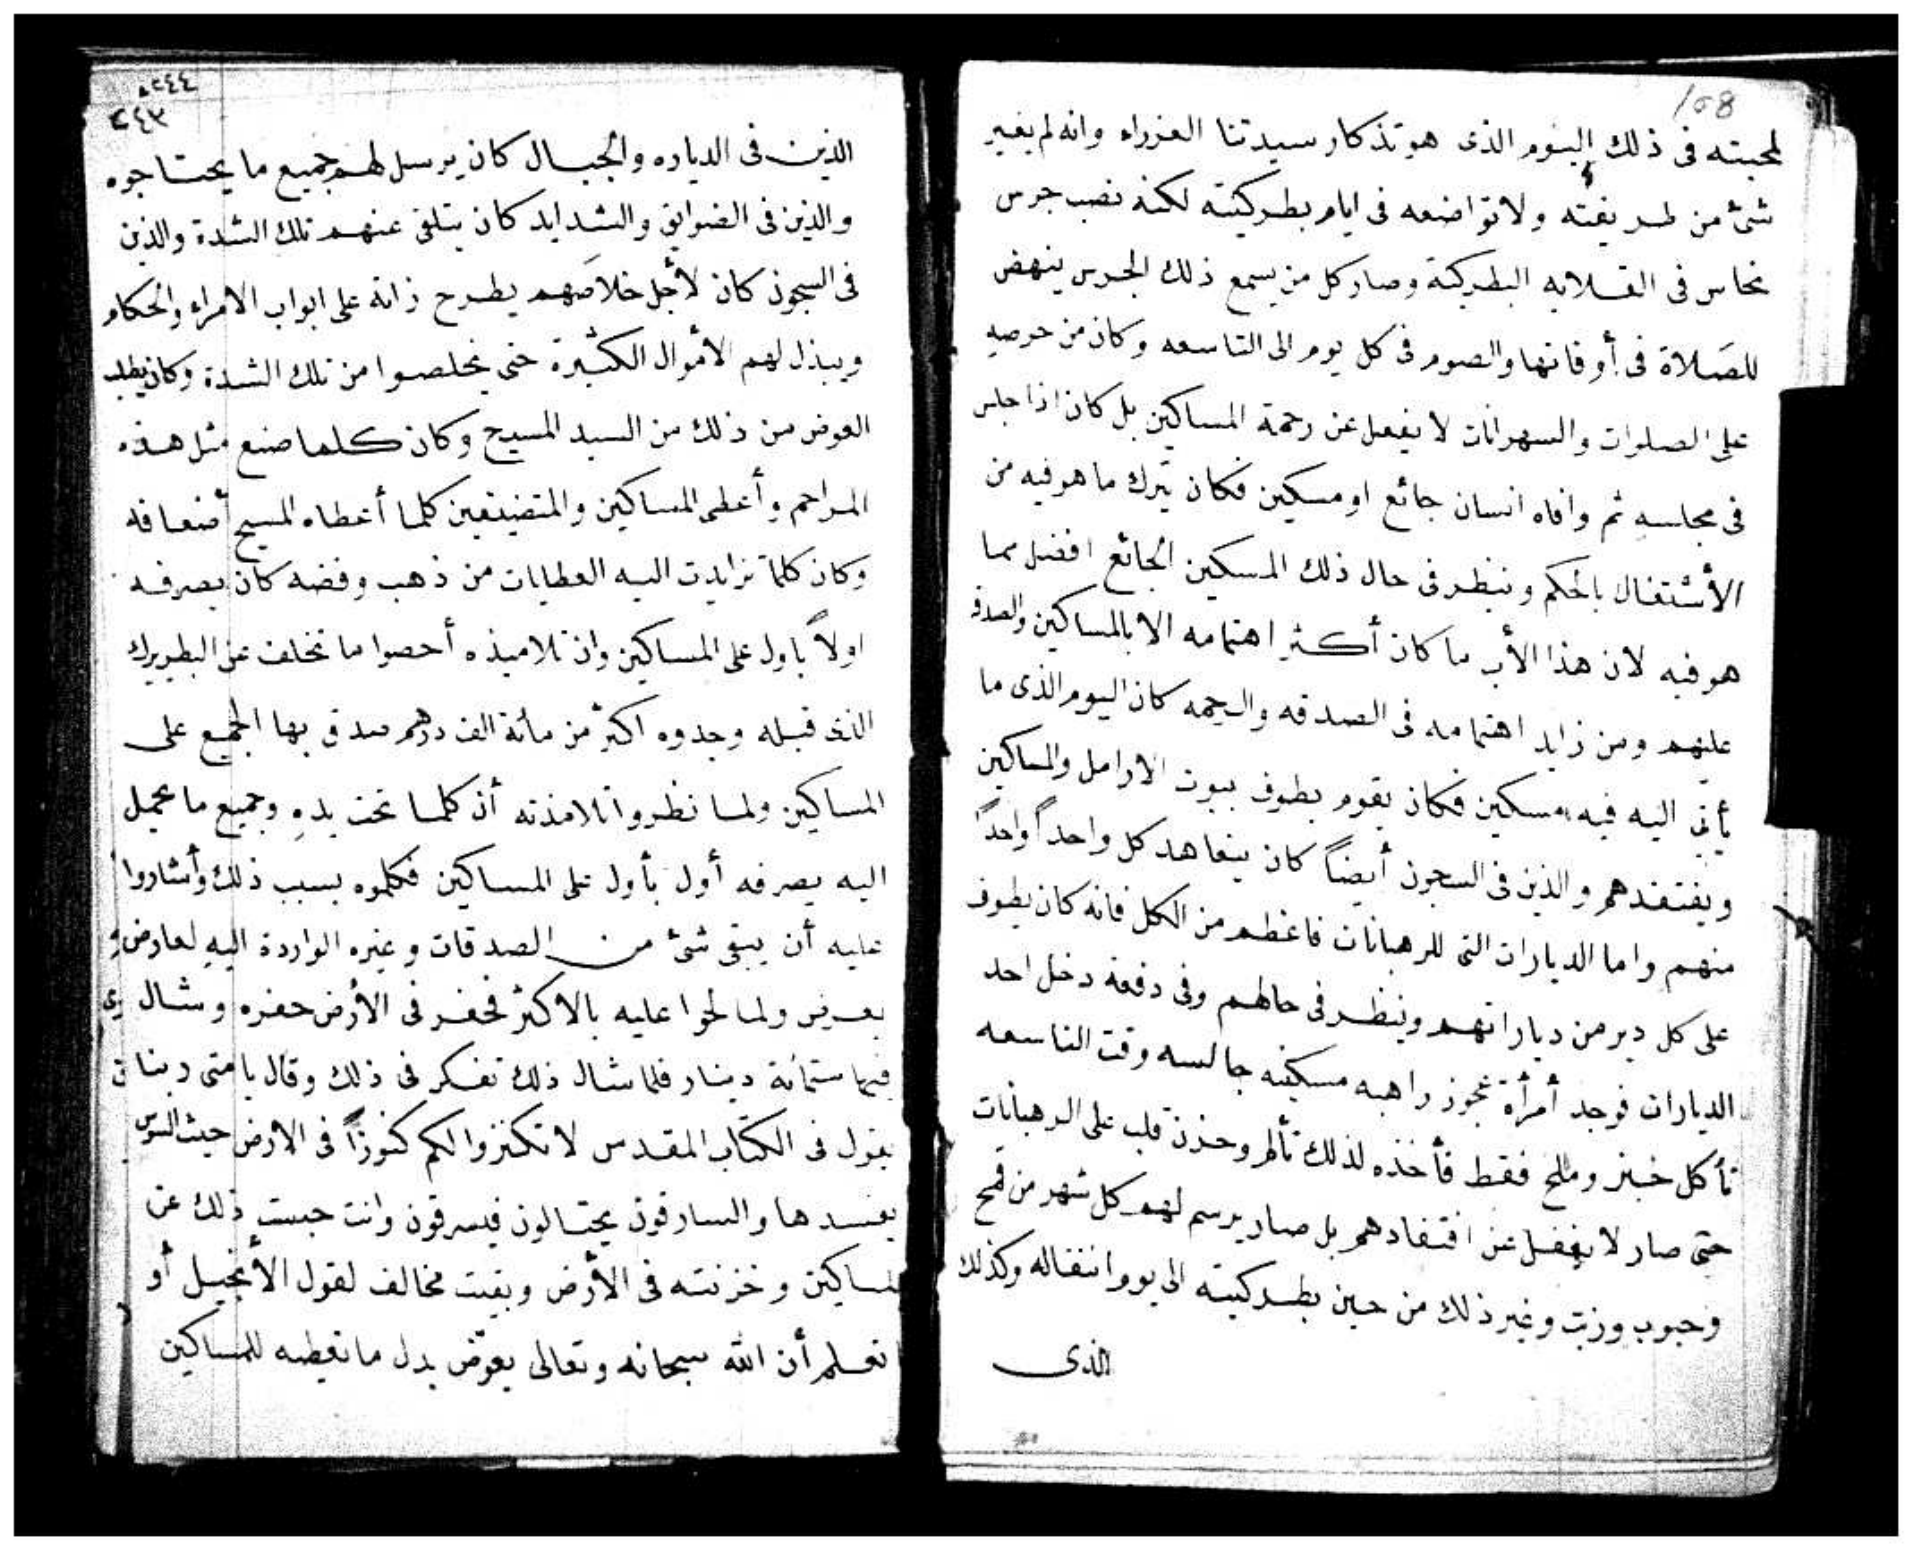 108
لمحبته فى ذلك اليوم الذى هو تذكار سيدتنا العزراء وانه لم يغير
شئ من طريقته ولا تواضعه فى ايام بطركيته لكنه نصب جرس
نحاس فى القلايه البطركية وصار كل من يسمع ذلك الجرس ينهض
للصلاة فى أوقاتها والصوم فى كل يوم الى التاسعه وكان من حرصه
على الصلوات والسهرانات لا يغفل عن رحمة المساكين بل كان اذا جلس
فى مجلسه ثم وافاه انسان جائع او مسكين فكان يترك ما هو فيه من
الأشتغال بالحكم وينظر فى حال ذلك المسكين الجائع افضل مما
هو فيه لان هذا الأب ما كان أكثر اهتمامه الا بالمساكين والصدقه
عليهم ومن زايد اهتمامه فى الصدقه والرحمه كان اليوم الذى ما
يأتى اليه فيه مسكين فكان يقوم يطوف بيوت الارامل والمساكين
ويفتقدهم والذين فى السجون أيضاً كان يتعاهد كل واحداً واحداً
منهم واما الديارات التى للرهبانات فاعظم من الكل فانه كان يطوف
على كل دير من دياراتهم وينظر فى حالهم وفى دفعة دخل احد
الديارات فوجد أمرأة عجوز راهبه مسكينه جالسه وقت التاسعه
تأكل خبز وملح فقط فأخذه لذلك تألم وحزن قلب على الرهبانات
حتى صار لا يغفل عن افتقادهم بل صار يرسم لهم كل شهر من قمح
وحبوب وزيت وغير ذلك من حين بطركيته الى يوم انتقاله وكذلك
الذى
٢٤٤
٢٤٣
الذين فى الدياره والجبال كان يرسل لهم جميع ما يحتاجوه
والذين فى الضوايق والشدايد كان يتلقى عنهم تلك الشدة والذين
فى السجون كان لأجل خلاصهم يطرح ذاته على ابواب الامراء والحكام
ويبذل لهم الأموال الكثيرة حتى يخلصوا من تلك الشدة وكان يطلب
العوض من ذلك من السيد المسيح وكان كلما صنع مثل هذه
المراحم وأعطى المساكين والمتضيقين كلما أعطاه المسيح أضعافه
وكان كلما تزايدت اليه العطايات من ذهب وفضه كان يصرفه
اولاً باول على المساكين وان تلاميذه أحصوا ما تخلف عن البطريرك
الذى قبله وجدوه اكثر من مائة الف درهم صدق بها الجميع على
المساكين ولما نظروا تلامذته أن كلما تحت يده وجميع ما يحمل
اليه يصرفه أول بأول على المساكين فكلموه بسبب ذلك وأشاروا
عليه أن يبقى شئ من الصدقات وغيره الواردة اليه لعارض
يعرض ولما لحوا عليه بالاكثر فحفر فى الأرض حفره وشال
فيها ستمائة دينار فلما شال ذلك تفكر فى ذلك وقال يا متى ربنا
يقول فى الكتاب المقدس لا تكنزوا لكم كنوزاً فى الارض حيث السوس
يفسدها والسارقون يحتالون فيسرقون وانت حبست ذلك عن
المساكين وخزنته فى الأرض وبقيت مخالف لقول الأنجيل أو
تعلم أن الله سبحانه وتعالى يعوض بدل ما تعطيه للمساكين